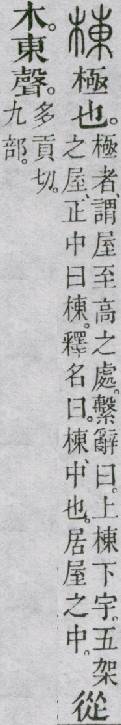 棟極也。極者、謂屋至高之處。繫辭曰。上棟下宇。五架之屋、正中曰棟。釋名曰。棟、中也。居屋之中。從
木。東聲。多貢切。九部。